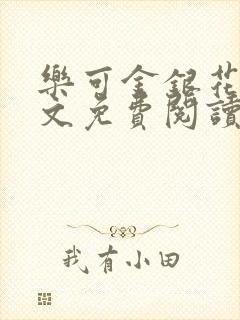 樂可金銀花
文免費閱讀
我有小田